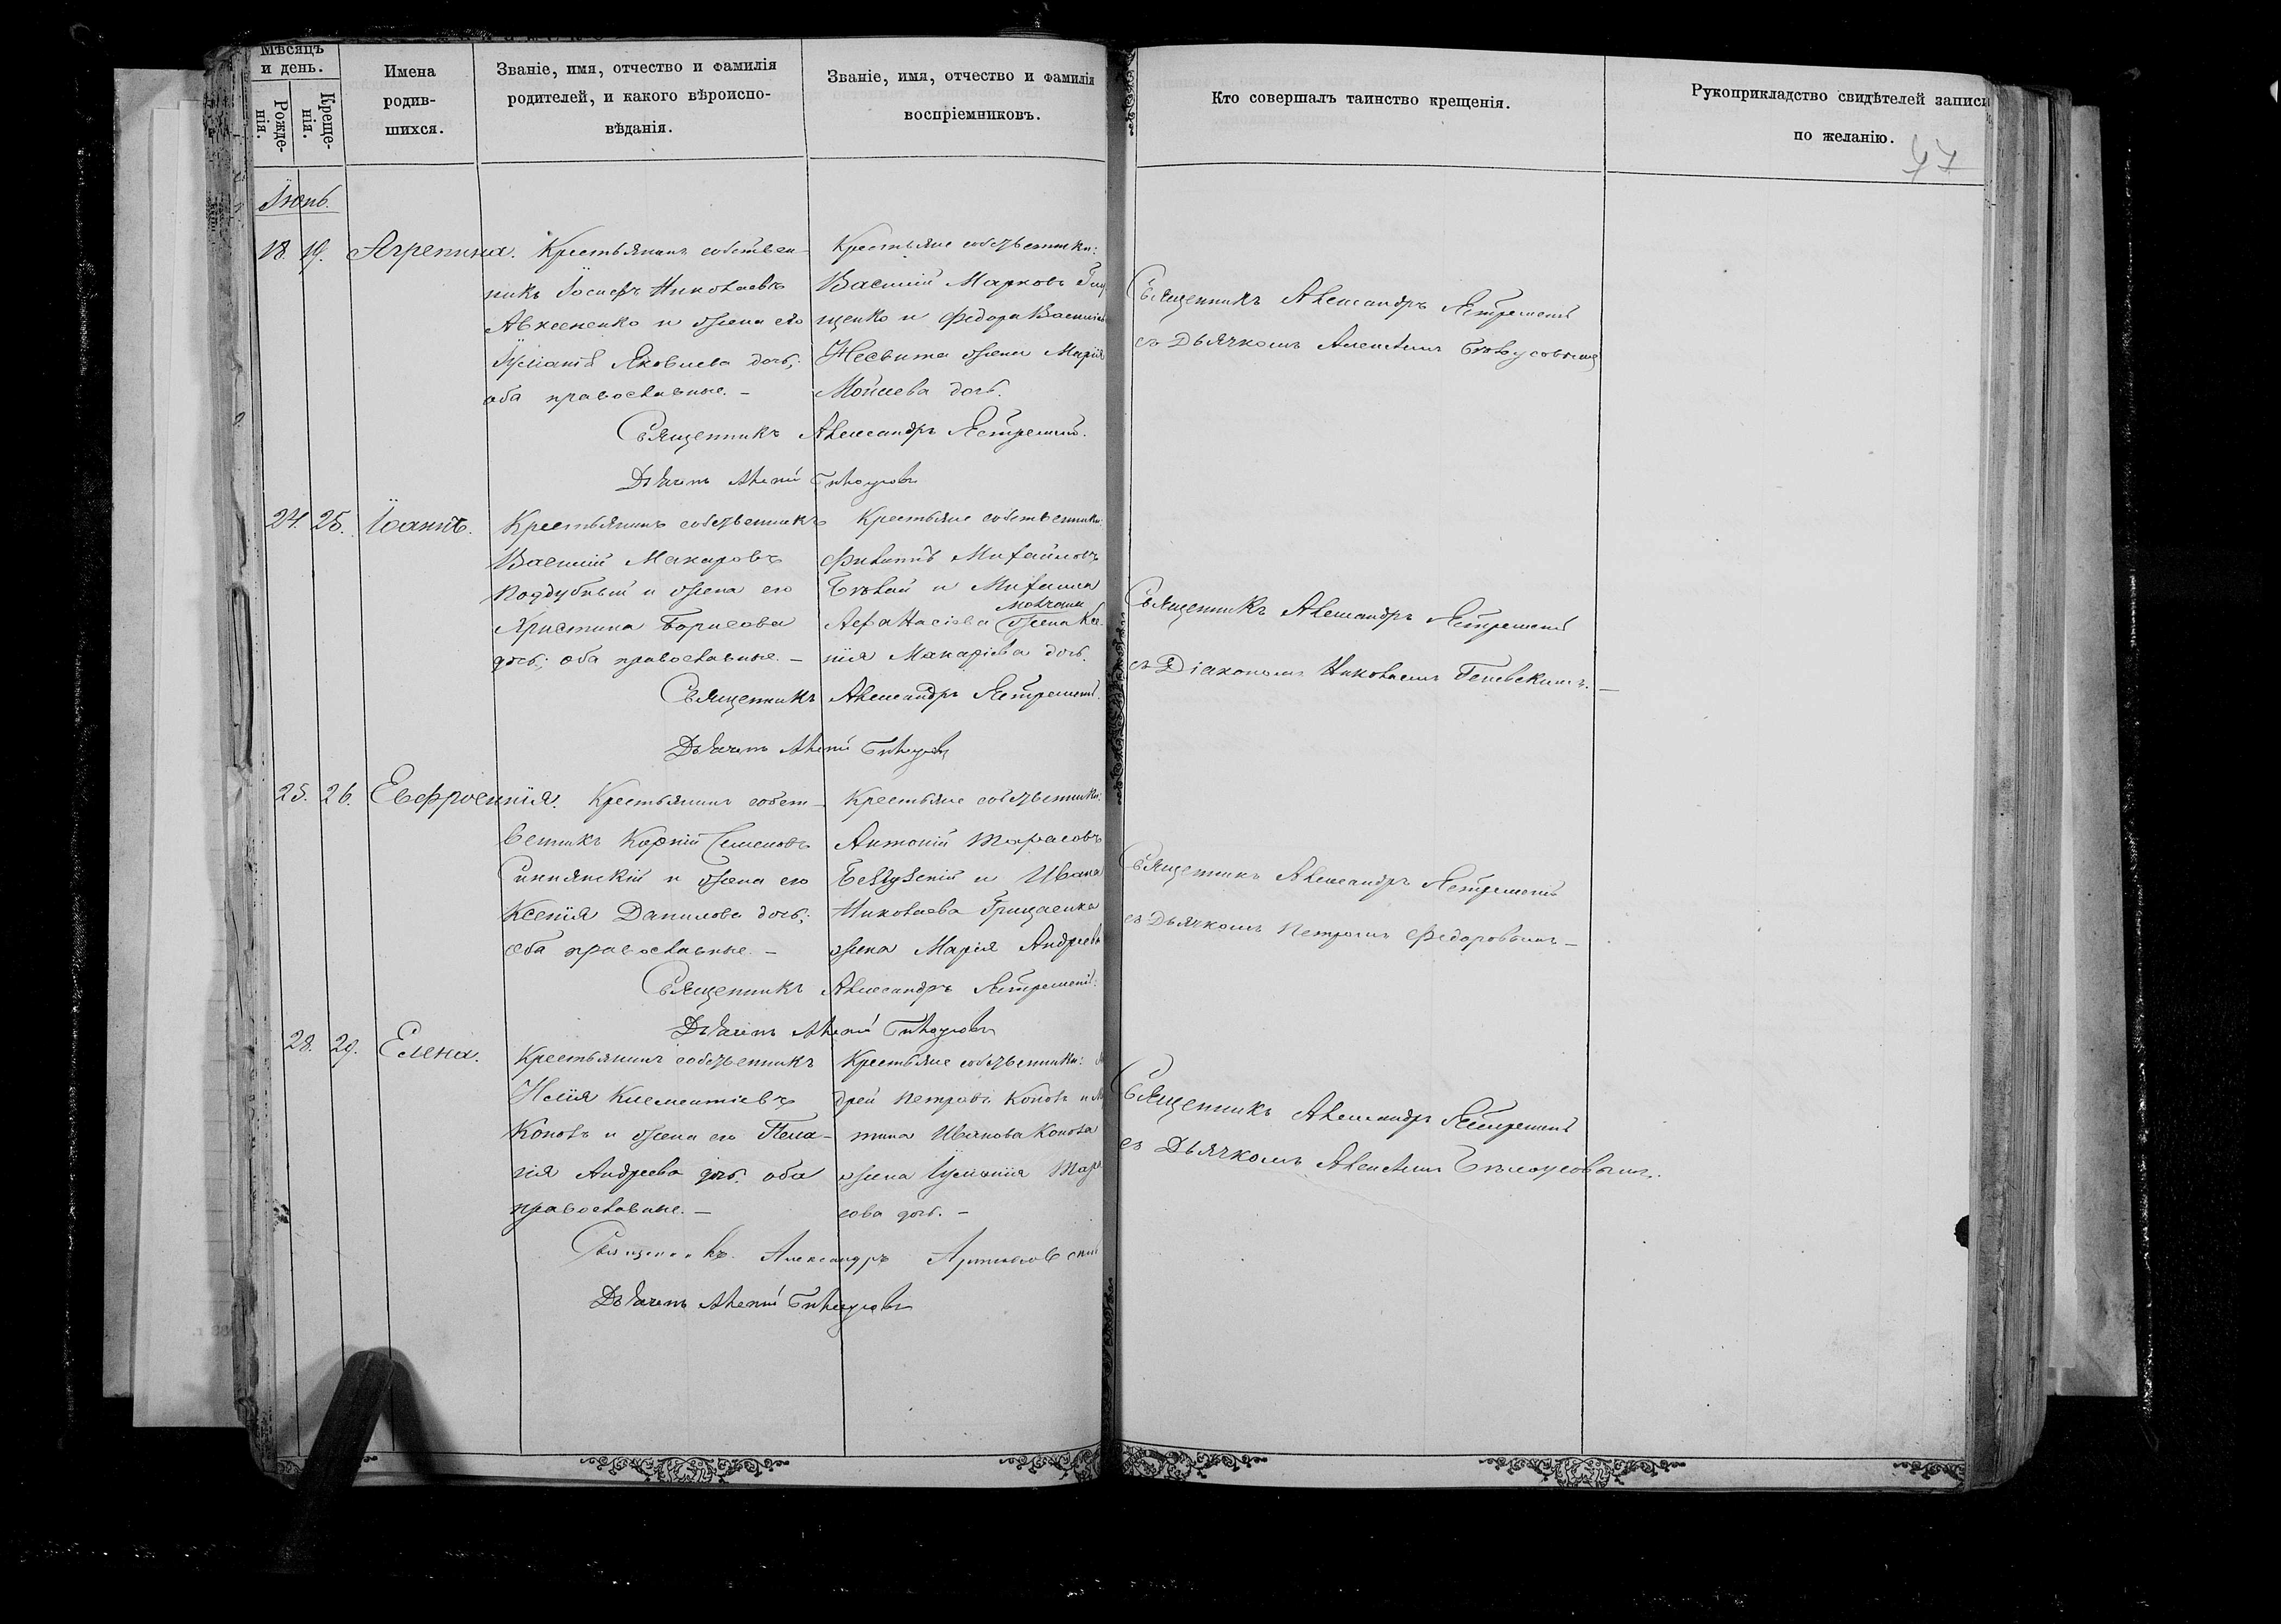 Мѣсяцъ и день.
Рожде-
нія.
Креще-
нія.
Имена
родив-
шихся.
Званіе, имя, отчество и фамилія
родителей, и какого вѣроиспо-
вѣданія.
Званіе, имя, отчество и фамилія
воспріемниковъ.
Кто совершалъ таинство крещенія.
Рукоприкладство свидѣтелей записи
по желанію.
47
Іюнь.
18. 19. Агрепина.
Крестьянинъ собствен-
никъ Іосифъ Николаевъ
Авхсененко и жена его
Іуліанія Яковлева дочь;
оба православные. –
Крестьяне собственники:
Василій Марковъ
щенко и Федора Василіев
Несвита жена Марія
Мойсіева дочь.
Священникъ Александръ
съ Дьячкомъ Алексѣемъ Бѣлоусовымъ
Священникъ Александръ
Дьячекъ Алексѣй Бѣлоусовъ
24. 25. Іоаннъ.
Крестьянинъ собственникъ
Василій Макаровъ
Поддубный и жена его
Христина Борисова
дочь; оба православные. –
Крестьяне собственники:
Филиппъ Михайловъ
Бѣлай и Михаила
Молчана
Афанасіева жена Ксе-
нія Макаріева дочь.
Священникъ Александръ
съ Діакономъ Николаемъ –
Священникъ Александръ
Дьячекъ Алексѣй Бѣлоусовъ
25. 26. Евфросинія.
Крестьянинъ собст-
венникъ Корній Семеновъ
Синянскій и жена его
Ксенія Данилова дочь;
оба православные. –
Крестьяне собственники:
Антоній Тарасовъ
и Ивана
Николаева Грицаенка
жена Марія Андреев
Священникъ Александръ
съ Дьячкомъ Петромъ Федоровымъ –
Священникъ Александръ
Дьячекъ Алексѣй Бѣлоусовъ
28. 29. Елена.
Крестьянинъ собственникъ
Илія Климентіевъ
Коповъ и жена его Пела-
гія Андреева дочь. оба
православные. –
Крестьяне собственники:
дрей Петровъ Коповъ и
тина Иванова Копова
жена Іуліанія Тара
сова дочь. –
Священникъ Александръ
съ Дьячкомъ Алексѣемъ Бѣлоусовымъ.
Священникъ Александръ
Дьячекъ Алексѣй Бѣлоусовъ